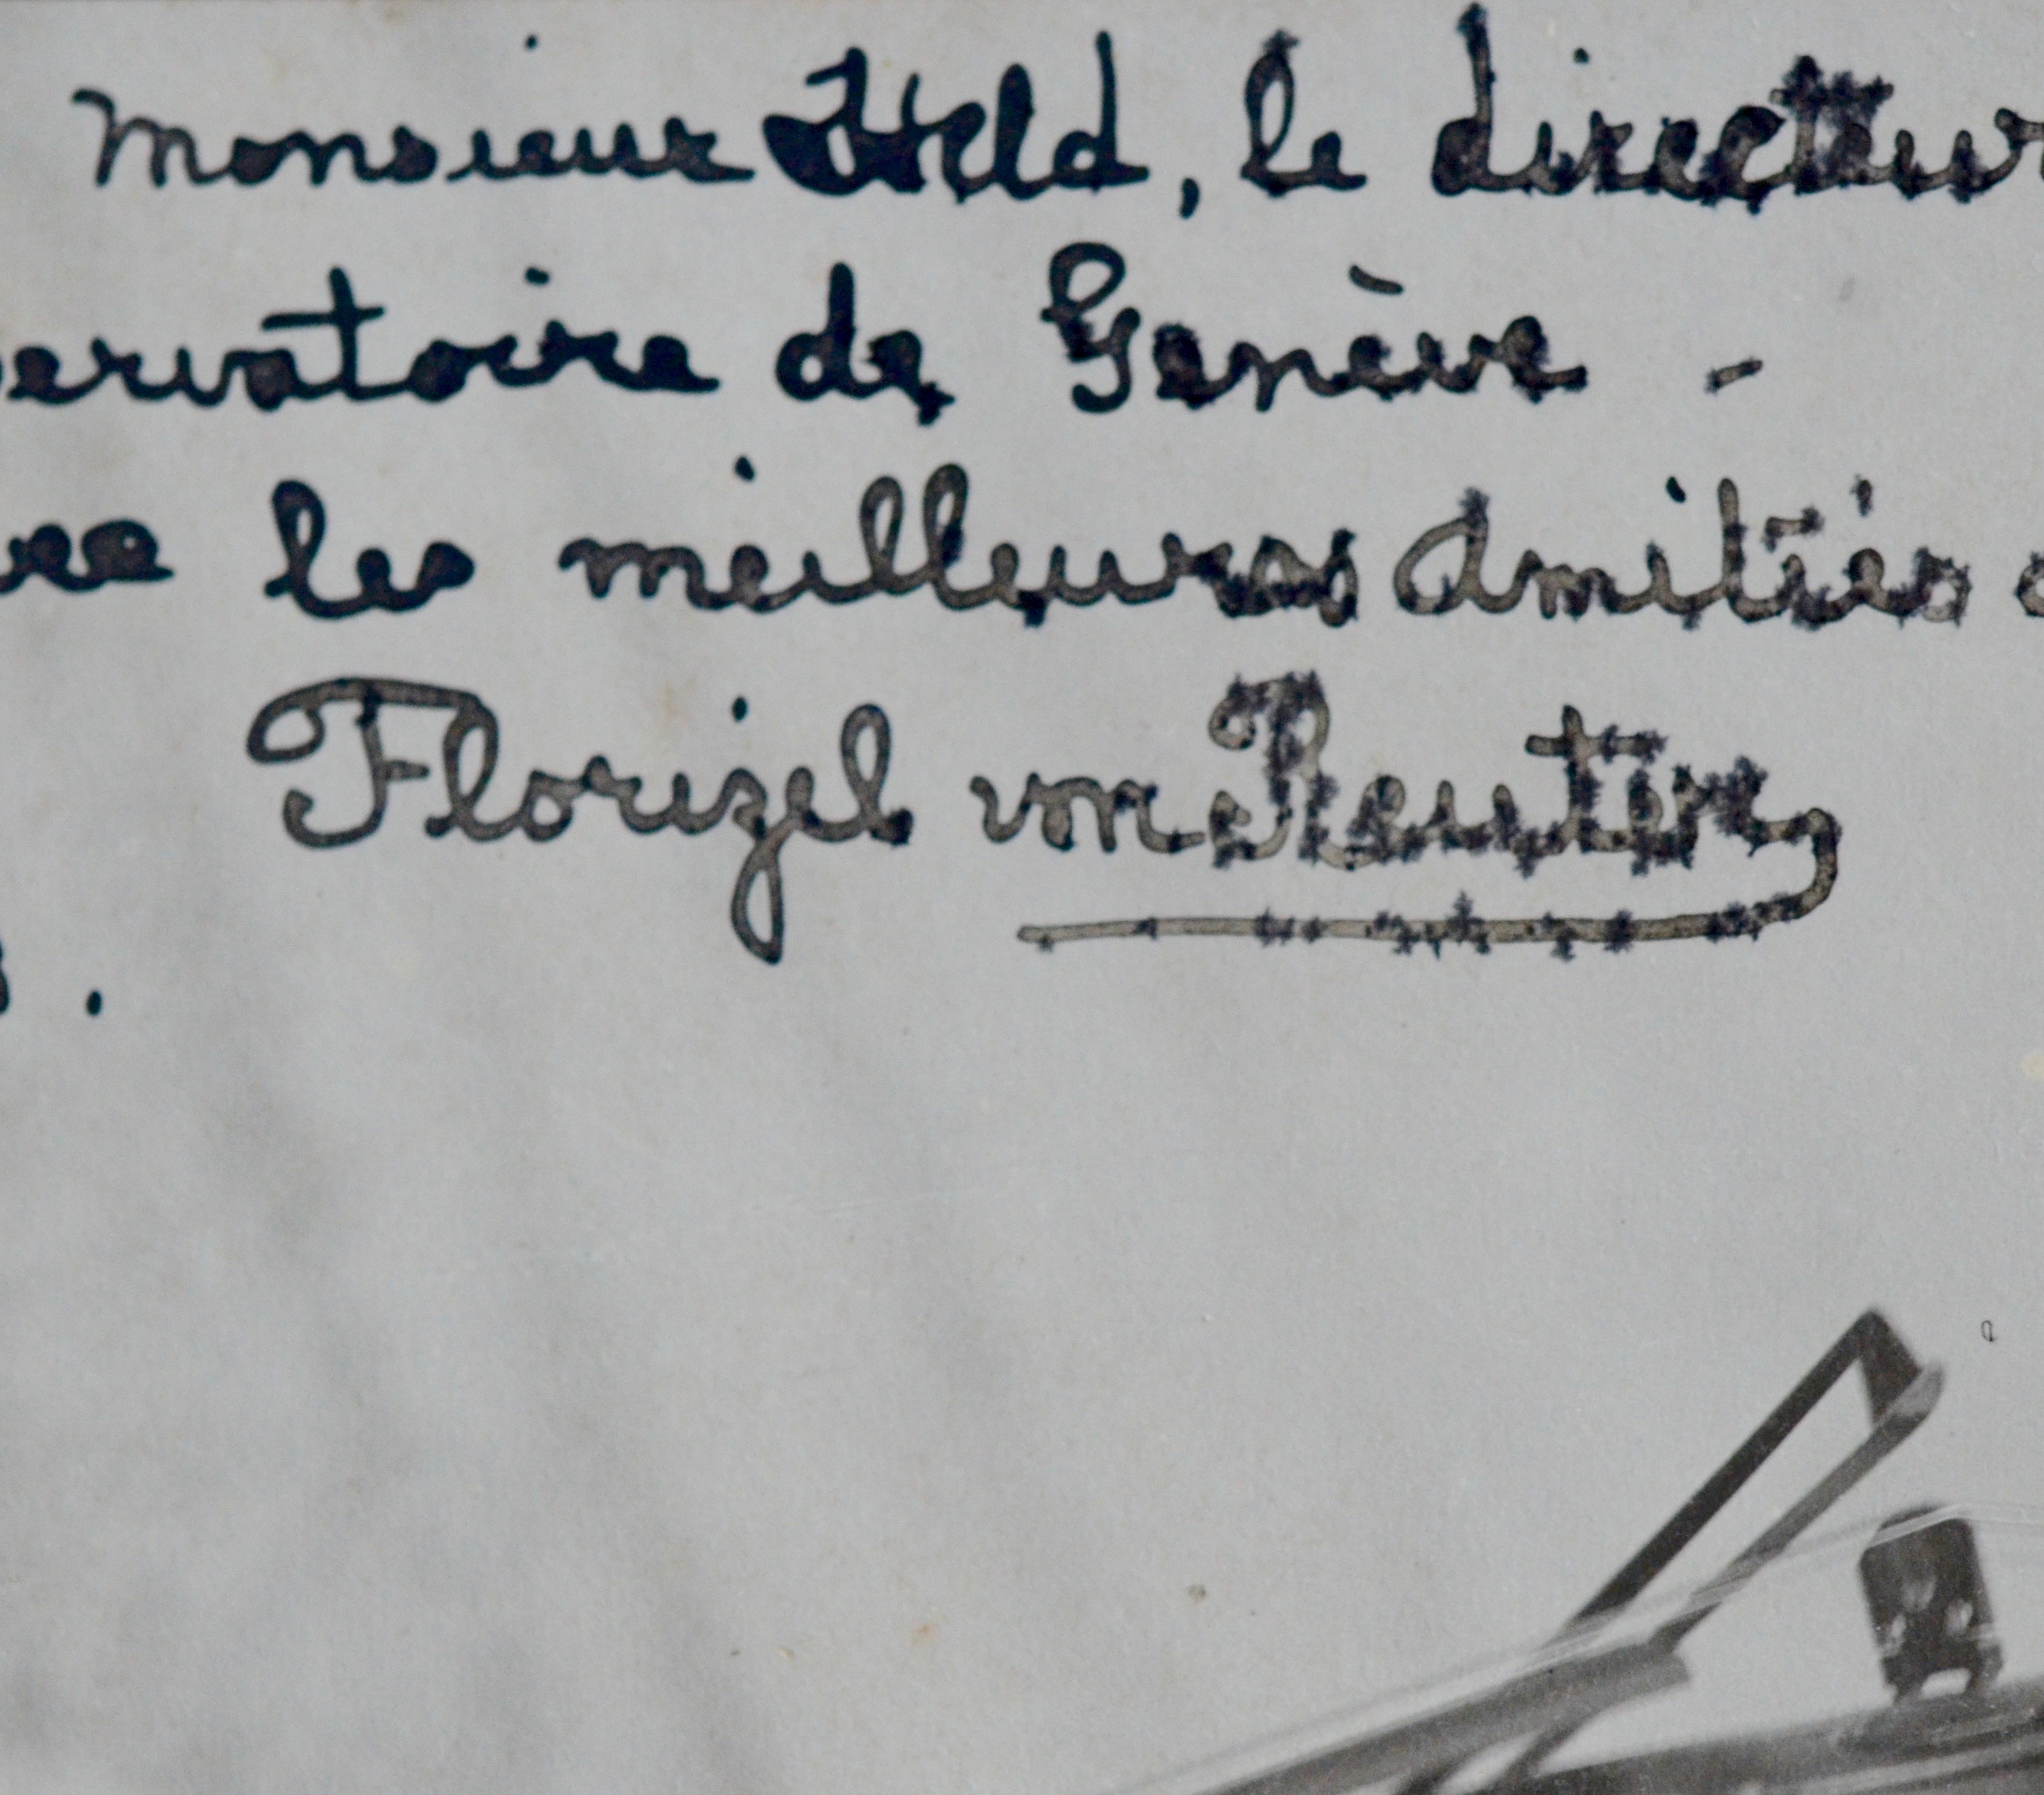 Monsieur Held, le directeur
ervatoire de Genève -
les meilleures amitiés
Florizel von Reuter
.